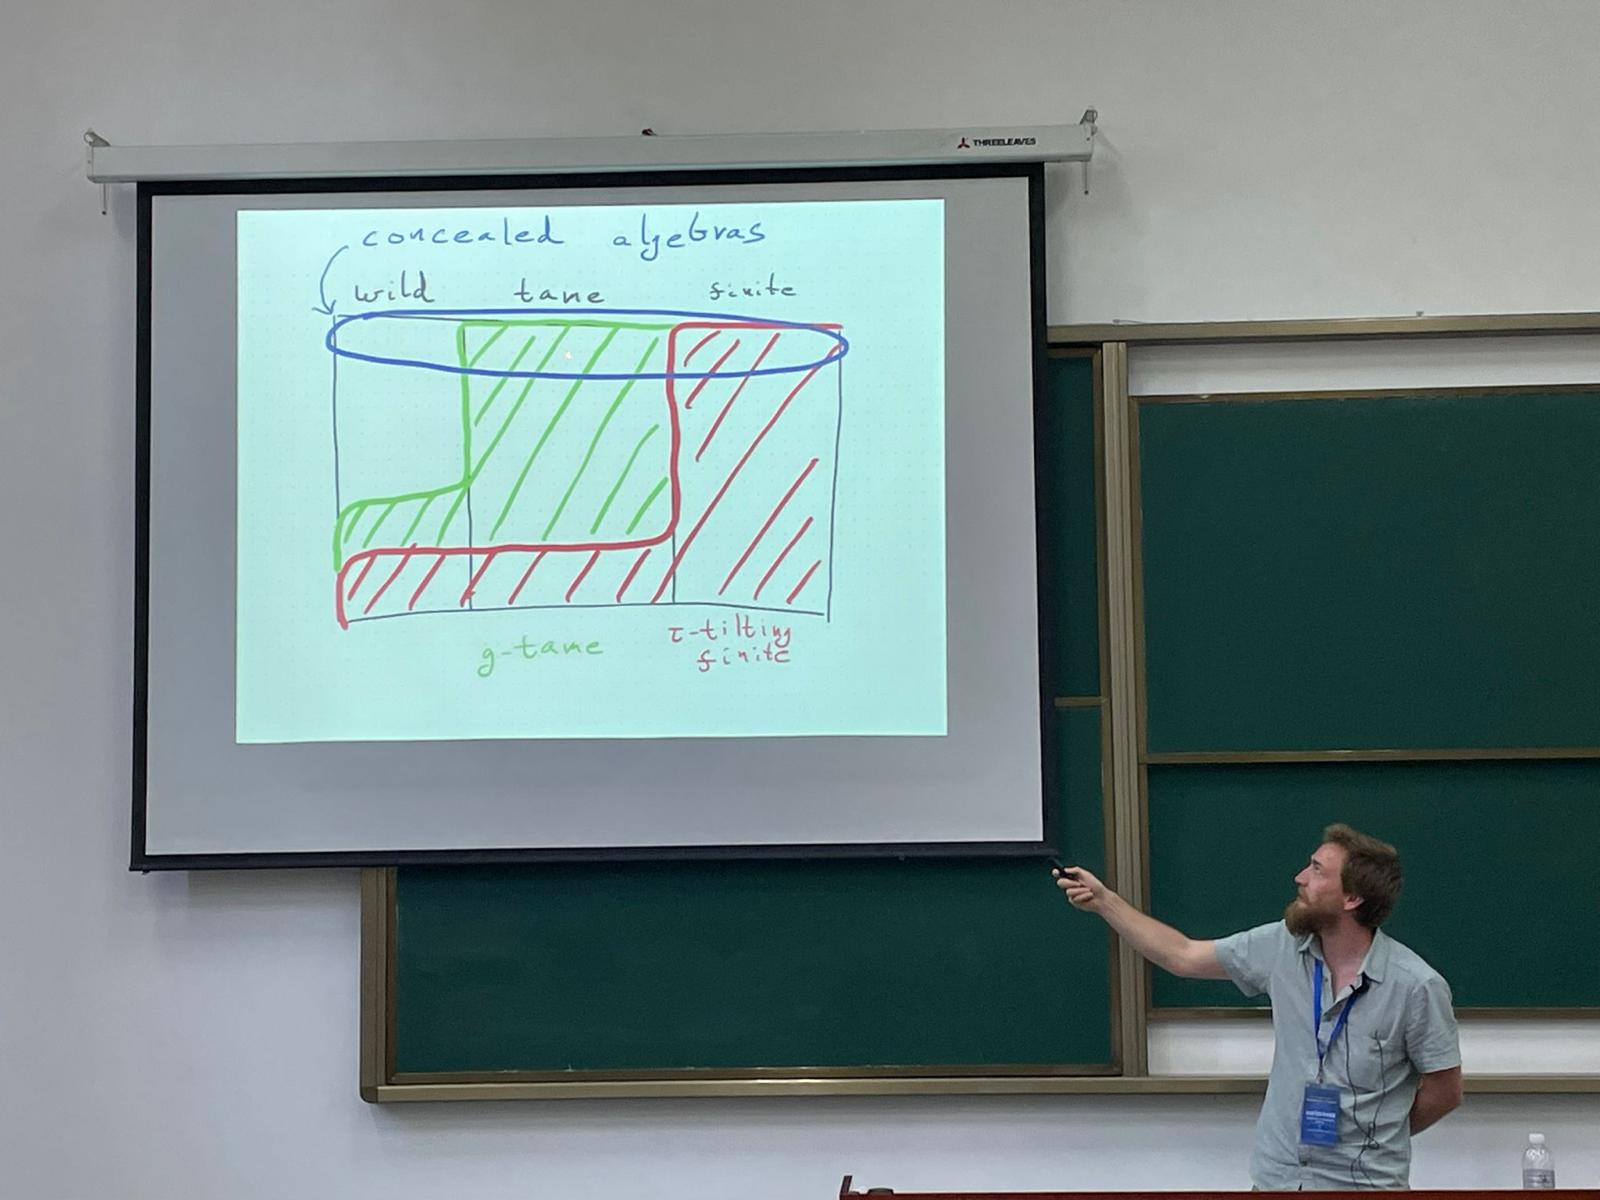 THREELEAVES
concealed algebras
wild tame finite
g-tame
τ-tilting
finite